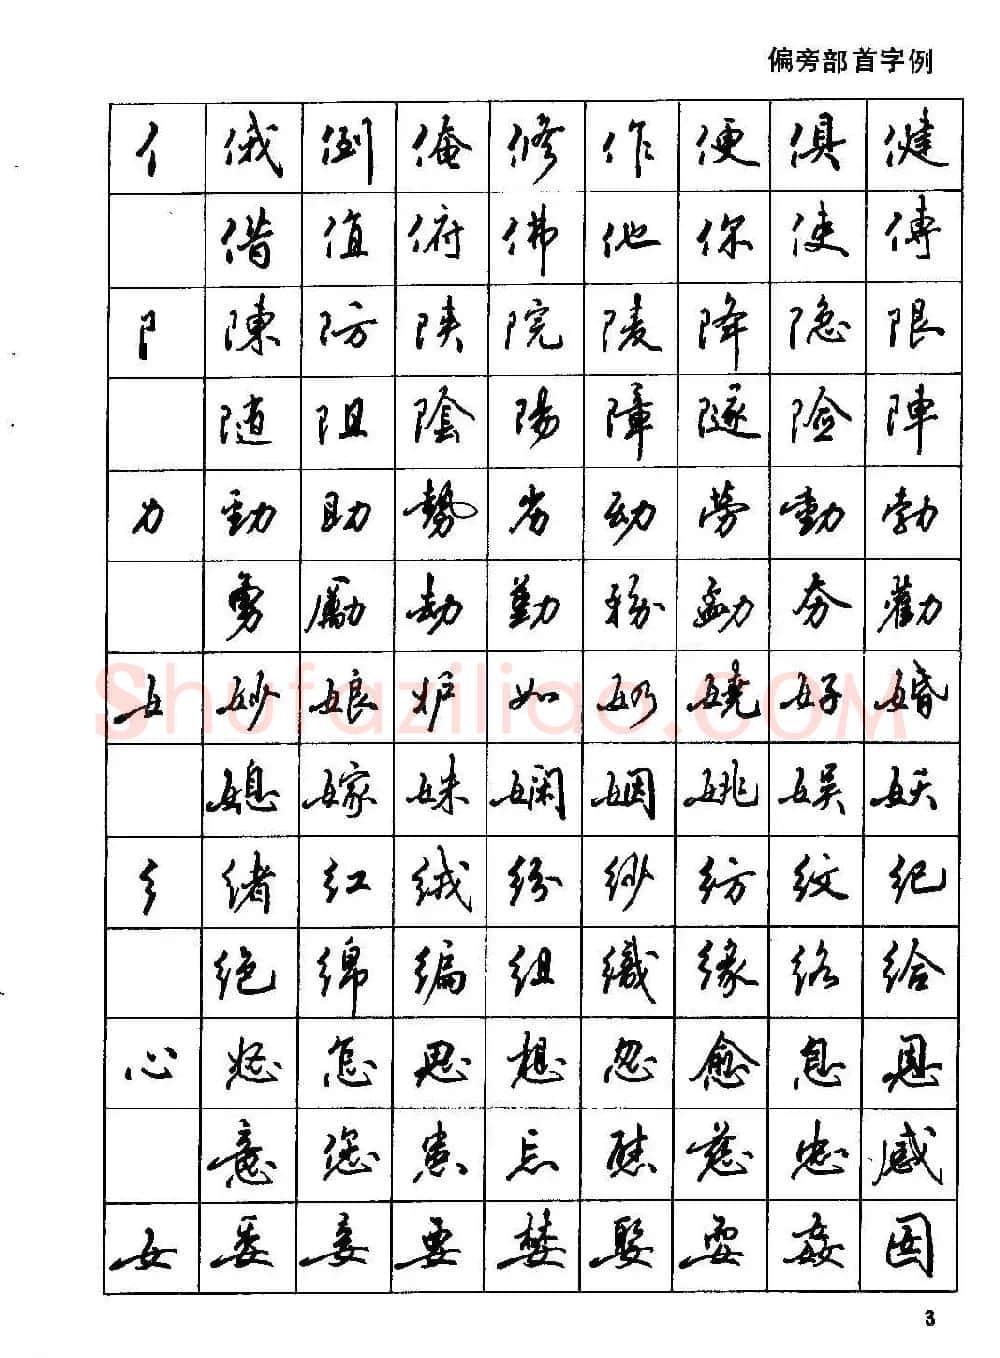 偏旁部首字例
亻 俄 倒 俺 修 作 便 俱 健
借 值 俯 佛 他 你 使 傅
阝 陳 防 陕 院 陵 降 隐 限
随 阻 陰 陽 障 隧 险 陣
力 勁 助 勢 劣 幼 劳 動 勃
勇 勵 劫 勤 務 勐 夯 勸
女 妙 娘 妒 如 奶 嬈 好 婚
媳 嫁 妹 嫻 姻 姚 娱 妖
纟 緒 红 绒 纷 纱 纺 纹 纪
绝 綿 编 组 織 缘 络 给
心 怒 怎 忍 想 忽 愈 息 恩
意 您 患 忘 慰 慈 忠 感
女 委 妾 要 婪 娶 耍 姦 囡
Shufaziliao.COM
3